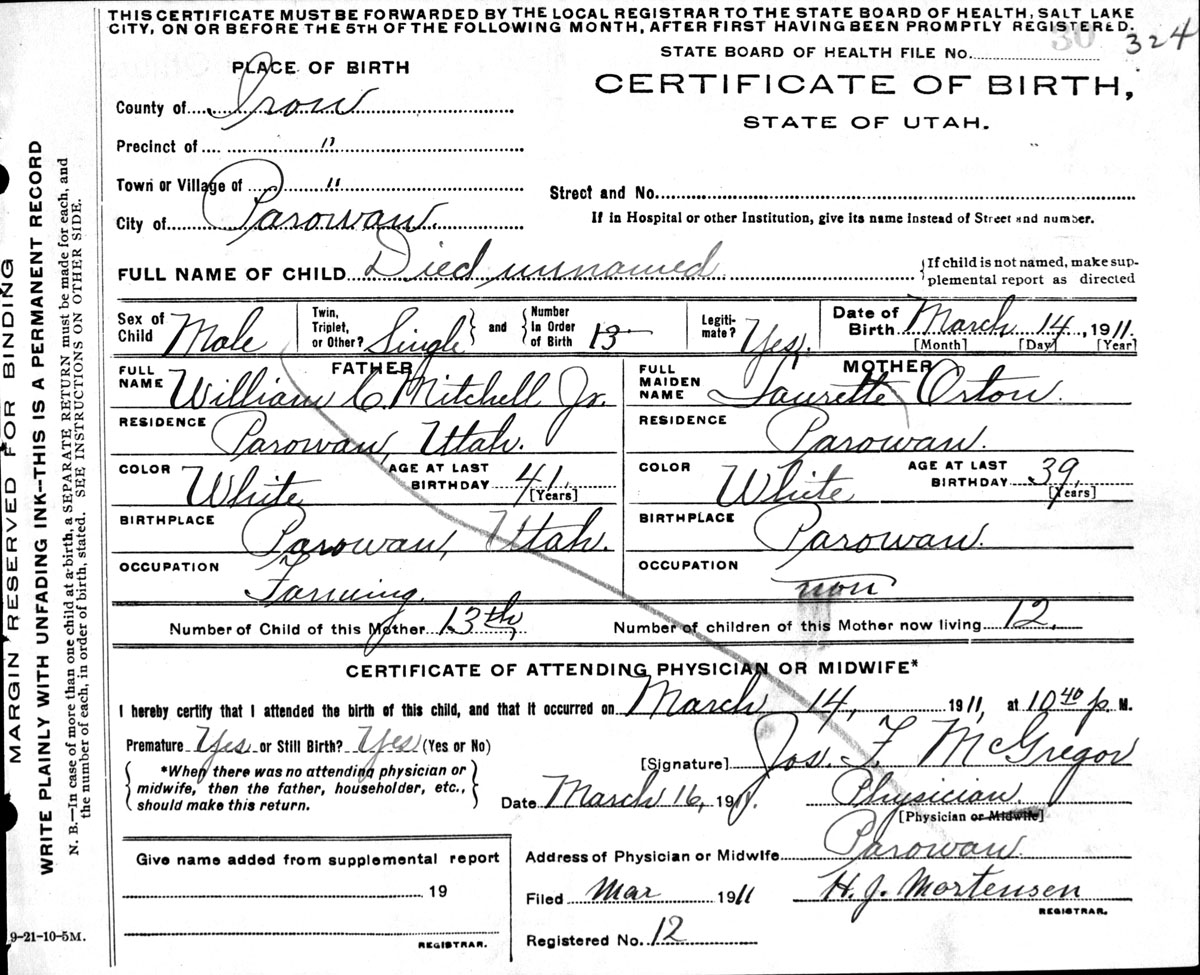 THIS CERTIFICATE MUST BE FORWARDED BY THE LOCAL REGISTRAR TO THE STATE BOARD OF HEALTH, SALT LAKE
CITY, ON OR BEFORE THE 5TH OF THE FOLLOWING MONTH, AFTER FIRST HAVING BEEN PROMPTLY REGISTERED.
30 324
STATE BOARD OF HEALTH FILE No.
CERTIFICATE OF BIRTH,
STATE OF UTAH.
PLACE OF BIRTH
County of Iron
Precinct of "
Town or Village of "
City of Parowan.
Street and No.
If in Hospital or other Institution, give its name instead of Street and number.
FULL NAME OF CHILD Died unnamed {If child is not named, make sup-
plemental report as directed
Sex of Child Male
Twin, Triplet, or Other? Single } and { Number In Order of Birth 13
Legiti-mate? Yes.
Date of Birth March 14, 1911.
[Month] [Day] [Year]
FATHER
FULL NAME William C. Mitchell Jr.
RESIDENCE Parowan, Utah.
COLOR White AGE AT LAST BIRTHDAY 41. [Years]
BIRTHPLACE Parowan, Utah.
OCCUPATION Farming.
MOTHER
FULL MAIDEN NAME Laurette Orton.
RESIDENCE Parowan.
COLOR White AGE AT LAST BIRTHDAY 39. [Years]
BIRTHPLACE Parowan.
OCCUPATION non
Number of Child of this Mother 13th, Number of children of this Mother now living 12.
CERTIFICATE OF ATTENDING PHYSICIAN OR MIDWIFE*
I hereby certify that I attended the birth of this child, and that it occurred on March 14, 1911, at 10 40 p. M.
Premature Yes or Still Birth? Yes (Yes or No)
{ *When there was no attending physician or
midwife, then the father, householder, etc.,
should make this return. }
[Signature] Jos. F. McGregor
Date March 16, 1911. Physician.
[Physician or Midwife]
Address of Physician or Midwife Parowan.
Filed Mar 1911 H. J. Mortensen
REGISTRAR.
Registered No. 12
Give name added from supplemental report
19
REGISTRAR.
9-21-10-5M.
MARGIN RESERVED FOR BINDING
WRITE PLAINLY WITH UNFADING INK—THIS IS A PERMANENT RECORD
N. B.—In case of more than one child at a birth, a SEPARATE RETURN must be made for each, and
the number of each, in order of birth, stated. SEE INSTRUCTIONS ON OTHER SIDE.